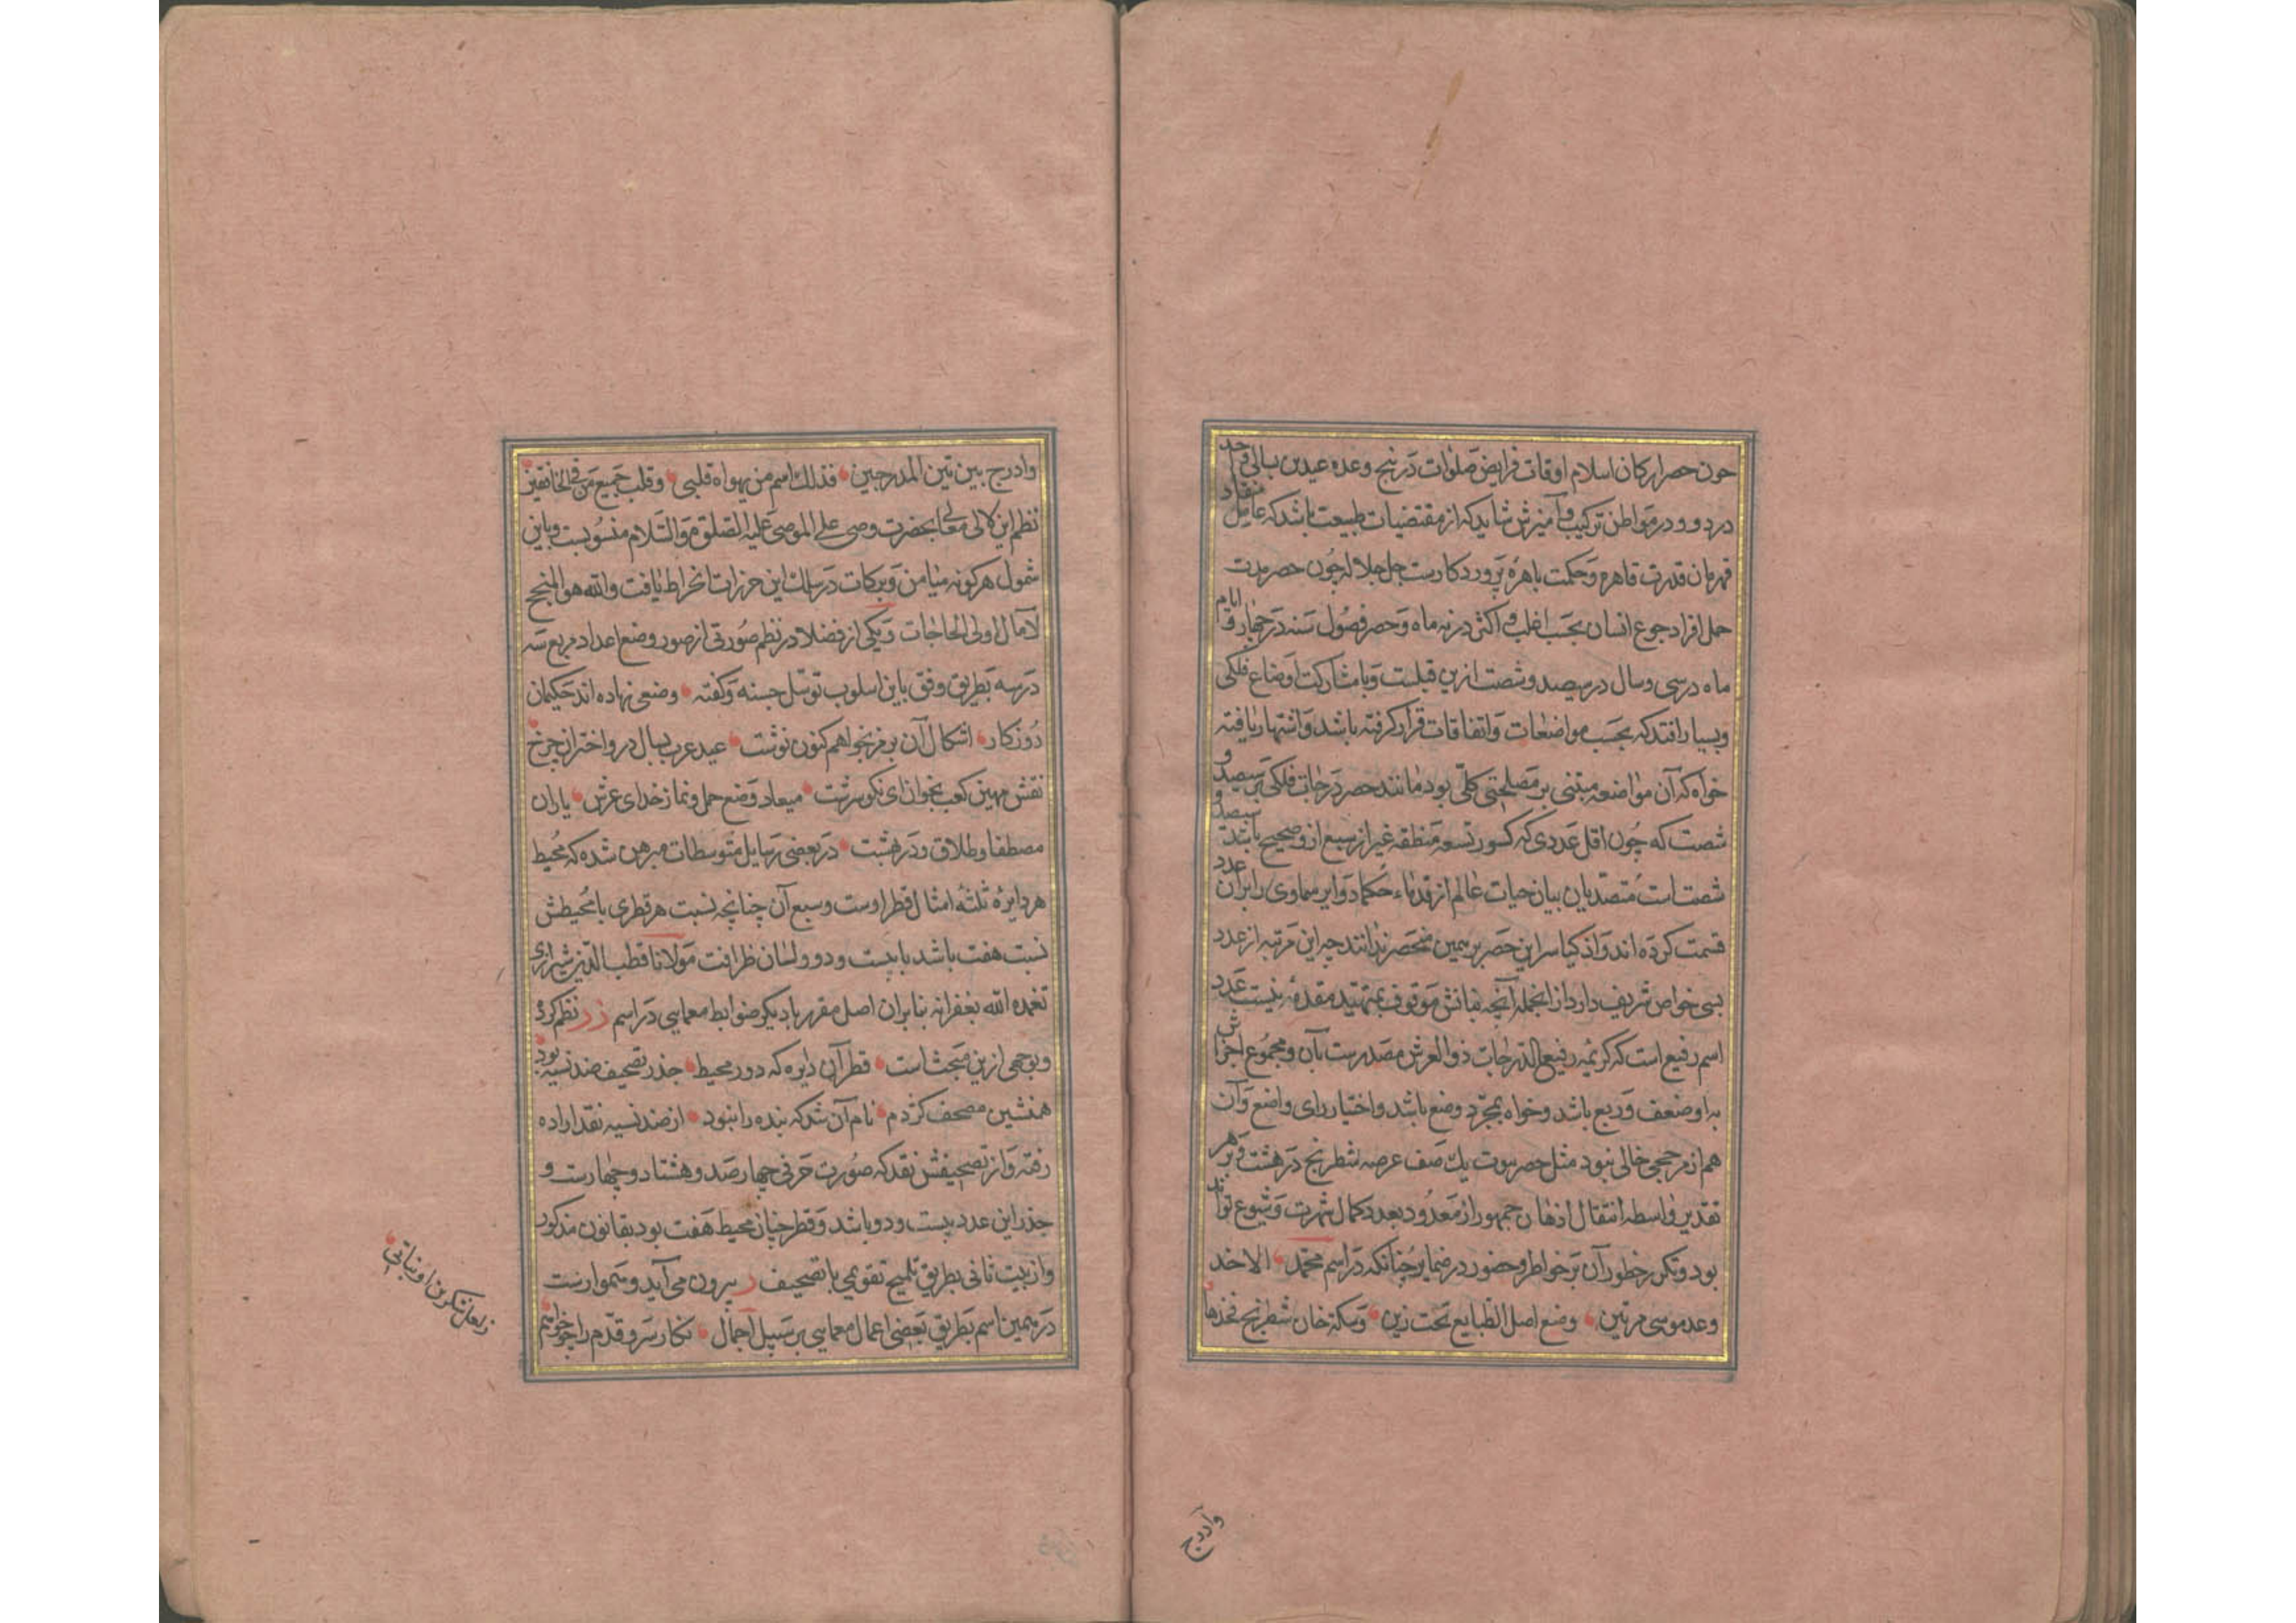 چون حصر ارکان اسلام اوقات فرایض صلوات در پنج وعده عیدین بسالی
در دو و در مواطن ترکیب و آمیزش شاید که از مقتضیات طبیعت باشد که عامل
قهرمان قدرت قاهره و حکمت باهرهٔ پروردکارست جل جلاله چون حصر مدت
حمل افراد جوع انسان بحسب اغلب و اکثر در نه ماه و حصر فصول سنه در چهار و ایام
ماه در سی و سال در سیصد و شصت ازین قبلست و یا مشارکت اوضاع فلکی
و بسیار افتد که بحسب مواضعات و اتفاقات قرار کرفته باشد و اشتهار یافته
خواه که آن مواضعه مبتنی بر مصلحتی کلّی بود مانند حصر درجات فلکی بر سیصد و
شصت که چون اقل عددی که کسور تسعه منطقه غیر از سبع ازو صحیح یابند سیصد و
شصت است متصدیان بیان حیات عالم از قدماء حکما دوایر سماوی را بر آن عدد
قسمت کرده اند و اذکیا سر این حصر برهمین منحصر ندانند چه این مرتبه از عدد
بسی خواص شریف دارد از انجمله آنچه بیانش موقوف بتمهید مقدمهٔ نیست عدد
اسم رفیع است که کریمهٔ رفیع الدّرجات ذو العرش مصدرست بآن و مجموع اجزاش
براو ضعف و ربع باشد و خواه بمجرّد وضع باشد و اختیار رای واضع و آن
هم از مرجحی خالی نبود مثل حصر بیوت یک صف عرصه شطرنج در هشت و بر هر
تقدیر واسطه انتقال اذهان جمهور از معدود بعدد کمال شهرت و شیوع تواند
بود و تکرر خطور آن بر خواطر و حضور در ضمایر چنانکه در اسم محمّد الا خذ
وعد موسی مرتین وضع اصل الطبایع تحت ذین و سکة خان شطرنج فخذها
وادرج
وادرج بین تین المدرجین فذلک اسم من یهواه قلبی و قلب جمیع من فی الخافقین
نظم این لآلی معالی بحضرت وصی علی الموصی علیه الصلوة و السّلام منسوبست و باین
شمول هرکونه میامن و برکات در سلک این حرزات انخراط یافت والله هو المنجح
لآمال اولی الحاجات و یکی از فضلا در نظم صورتی از صور وضع اعداد مربع سه
در سه بطریق وفق باین اسلوب توسّل جسته و کفته وضعی نهاده اند حکیمان
روزکار اشکال آن بر مز بخواهم کنون نوشت عید عرب بسال در و اختران چرخ
نقش مهین کعب بخوان ای نکو سرشت میعاد وضع حمل و نماز خدای عرش یاران
مصطفا و طلاق و در بهشت در بعضی رسایل متوسطات مبرهن شده که محیط
هر دایره ثلثه امثال قطر اوست و سبع آن چنانچه نسبت هر قطری با محیطش
نسبت هفت باشد با بیست و دو و لسان ظرافت مولانا قطب الدّین شیرازی
تغمده الله بغفرانه بنابران اصل مقرر بادیکر ضوابط معمایی در اسم زر نظم کردهٔ
و بوجهی ازین مبحث است قطر آن دایره که دور محیط جذر تصحیف ضد نسیه بود
همنشین مصحف کژدم نام آن شد که بنده را نبود از ضد نسیه نقد اراده
رفته و از تصحیفش نقد که صورت حرفی چهارصد و هشتاد و چهارست و
جذر این عدد بیست و دو باشد و قطر چنان محیط هفت بود بقانون مذکور
و از بیت ثانی بطریق تلمیح تقویمی با تصحیف ر بیرون می آید و سموارنست
در همین اسم بطریق بعضی اعمال معمایی بر سبیل اجمال نکار سر و قدّم را چو خواستم
ز لعلش شکرین او نباتی